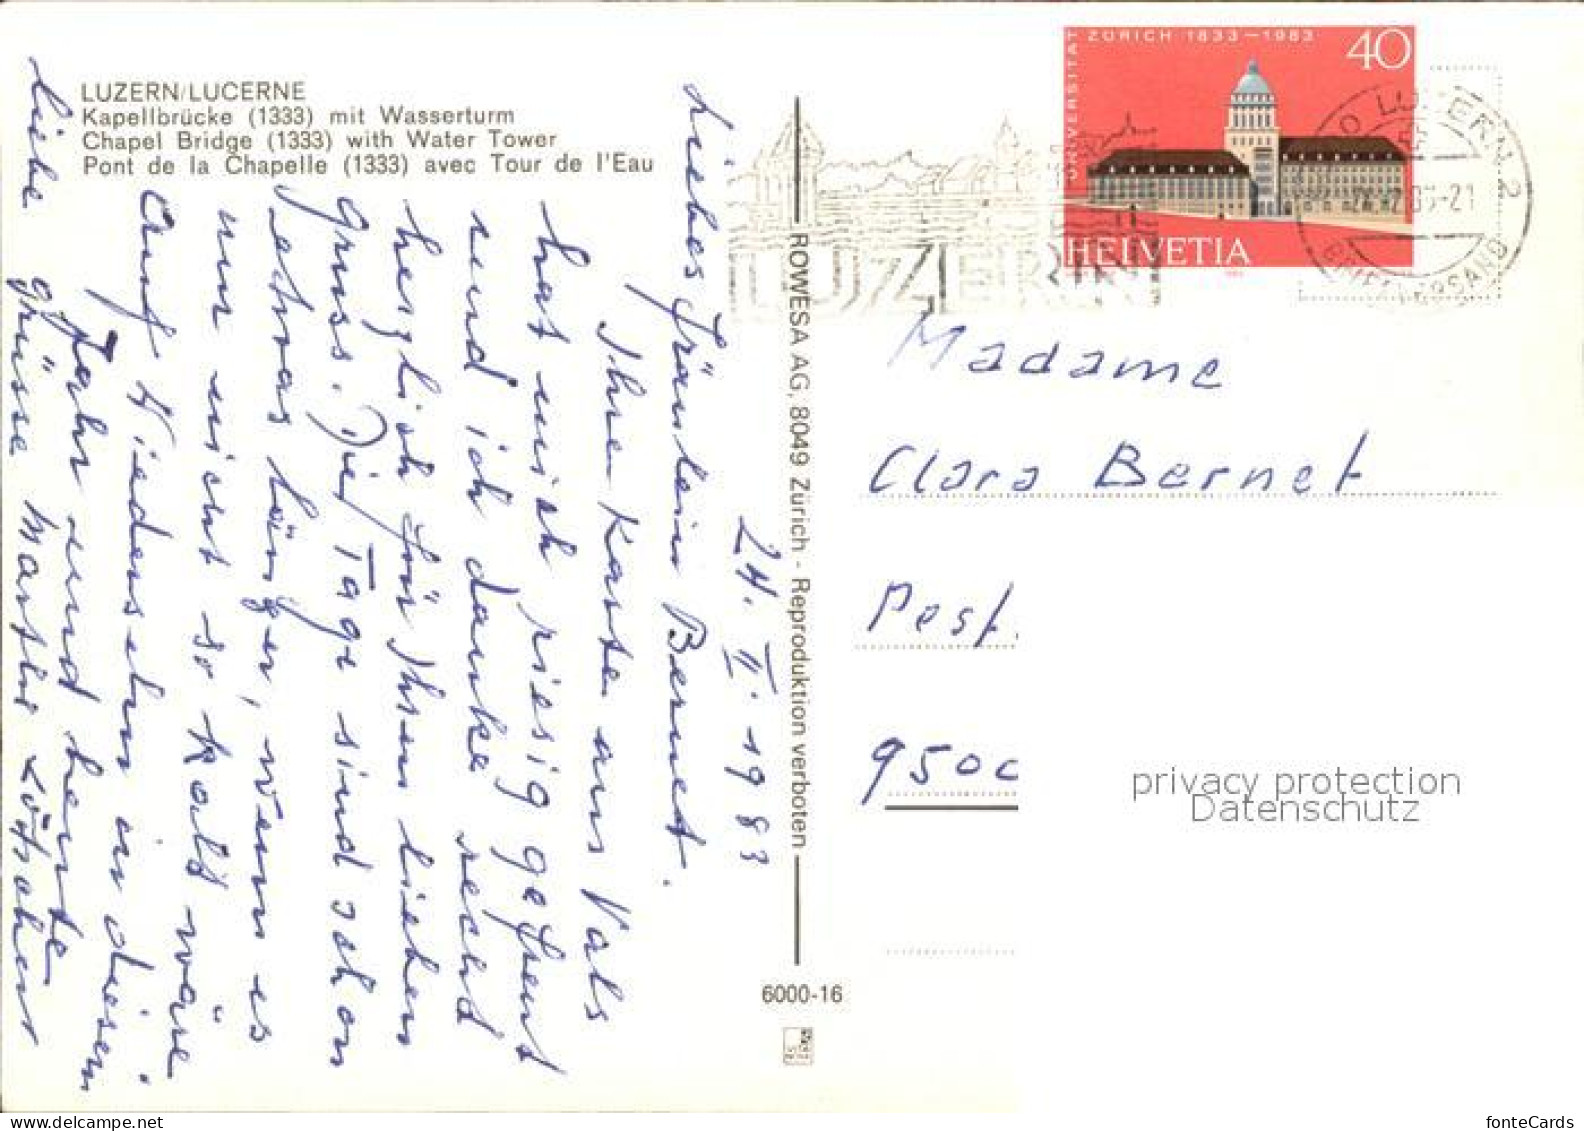 LUZERN/LUCERNE
Kapellbrücke (1333) mit Wasserturm
Chapel Bridge (1333) with Water Tower
Pont de la Chapelle (1333) avec Tour de l'Eau
24. II. 1983
Liebes Fräulein Bernet.
Ihre Karte aus Vals
hat mich riesig gefreut
und ich danke recht
herzlich für Ihren lieben
Gruss. Die Tage sind schon
etwas länger, wenn es
nur nicht so kalt wäre.
Auf Wiedersehn in diesem
Jahr und heute
liebe Grüsse Martin Lötscher
ROWESA AG, 8049 Zürich - Reproduktion verboten
6000-16
UNIVERSITÄT ZÜRICH 1833-1983
40
HELVETIA
LUZERN
LUZERN 2
BRIEFVERSAND
Madame
Clara Bernet
Post.
9500
privacy protection
Datenschutz
fonteCards